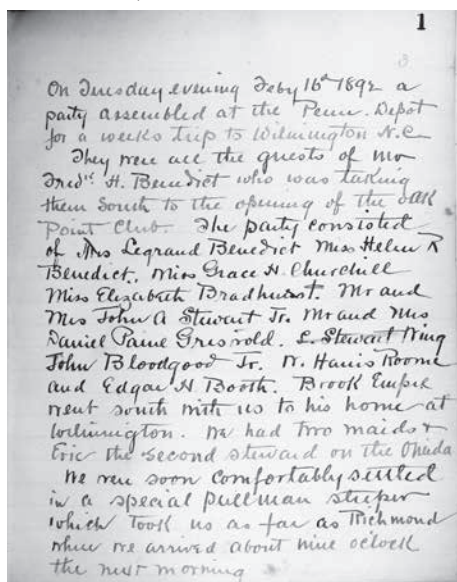 1
3
On Tuesday evening Feby 16th 1892 a
party assembled at the Penn. Depot
for a weeks trip to Wilmington N.C
They were all the guests of Mr
Fredk H. Benedict who was taking
them South to the opening of the Oak
Point Club. The party consisted
of Mrs Legrand Benedict Miss Helen R
Benedict, Miss Grace H. Churchill
Miss Elizabeth Bradhurst. Mr and
Mrs John A Stewart Jr. Mr and Mrs
Daniel Paine Griswold. L. Stewart Wing
John Bloodgood Jr. W. Harris Roome
and Edgar H Booth. Brook Empie
went south with us to his home at
Wilmington. We had two maids &
Eric the second steward on the Oneida
We were soon comfortably settled
in a special Pullman sleeper
which took us as far as Richmond
where we arrived about nine oclock
the next morning